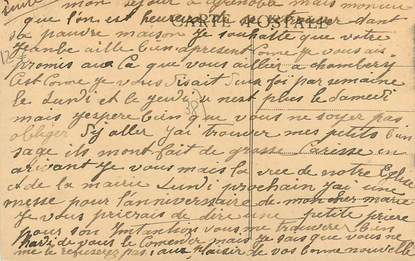 mon sejour a grenoble mais monsieur
que l'on est heureuse de rentrer dant
CARTE POSTALE
sa pauvre maison je souhaite que votre
jeanbe aille bien apresent comme je vous ais
promis aux ca que vous aillier a chambery
est comme je vous disait deux foi par semaine
le Lundi et le jeudi u nest plus le Samedi
mais j'espere bien que vous ne soyer pas
obliger d'y aller j'ai trouver mes petits bien
sage ils mont fait de grosse Caresse en
arivant je vous mais la vue de notre Eglise
et de la mairie Lundi prochain j'ai une
messe pour l'anniversaire de mon cher marie
je vous prierais de dire une petite priere
pour son Intantion vous me trouverer bien
hardi de vous le comender mais je sais que vous ne
me le refuserez pas, aux plaisir de vos bonne nouvelle